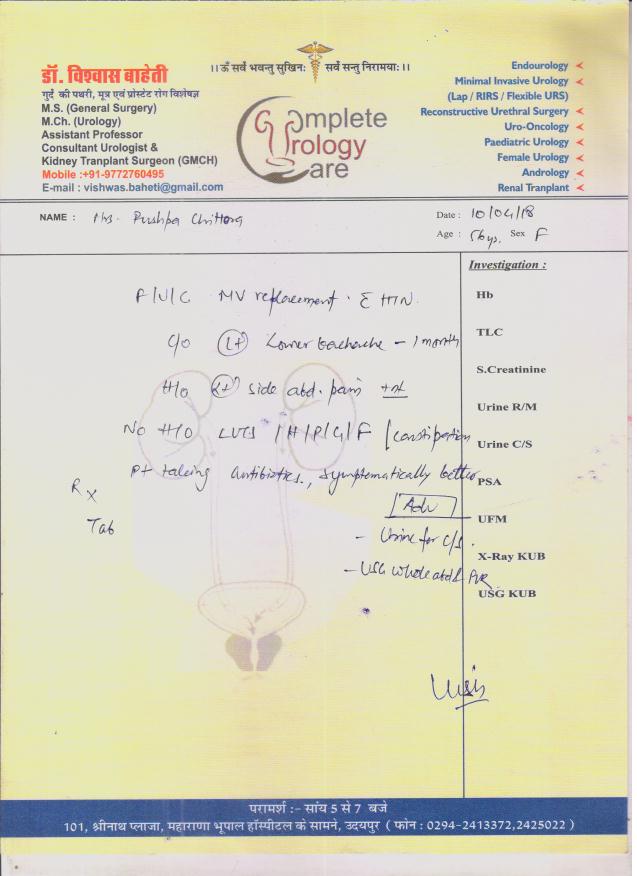 ।।ॐ सर्वे भवन्तु सुखिनः सर्वे सन्तु निरामयाः।।
डॉ. विश्वास बाहेती
गुर्दे की पथरी, मूत्र एवं प्रोस्टेट रोग विशेषज्ञ
M.S. (General Surgery)
M.Ch. (Urology)
Assistant Professor
Consultant Urologist &
Kidney Tranplant Surgeon (GMCH)
Mobile :+91-9772760495
E-mail : vishwas.baheti@gmail.com
Complete
Urology
Care
Endourology
Minimal Invasive Urology
(Lap / RIRS / Flexible URS)
Reconstructive Urethral Surgery
Uro-Oncology
Paediatric Urology
Female Urology
Andrology
Renal Tranplant
NAME : Mrs. Pushpa Chittora
Date : 10/04/18
Age : 56ys. Sex F
F/U/C MV replacement. HTN
c/o Lt Lower backache - 1 month
H/o Lt side abd. pain
No H/o LUTS / H/P/G/F / constipation
Pt taking antibiotics, symptomatically better
Rx
Tab
Adv
- Urine for C/S.
- USG whole abd & PVR
Investigation :
Hb
TLC
S.Creatinine
Urine R/M
Urine C/S
PSA
UFM
X-Ray KUB
USG KUB
परामर्श :- सांय 5 से 7 बजे
101, श्रीनाथ प्लाजा, महाराणा भूपाल हॉस्पीटल के सामने, उदयपुर ( फोन : 0294-2413372,2425022 )